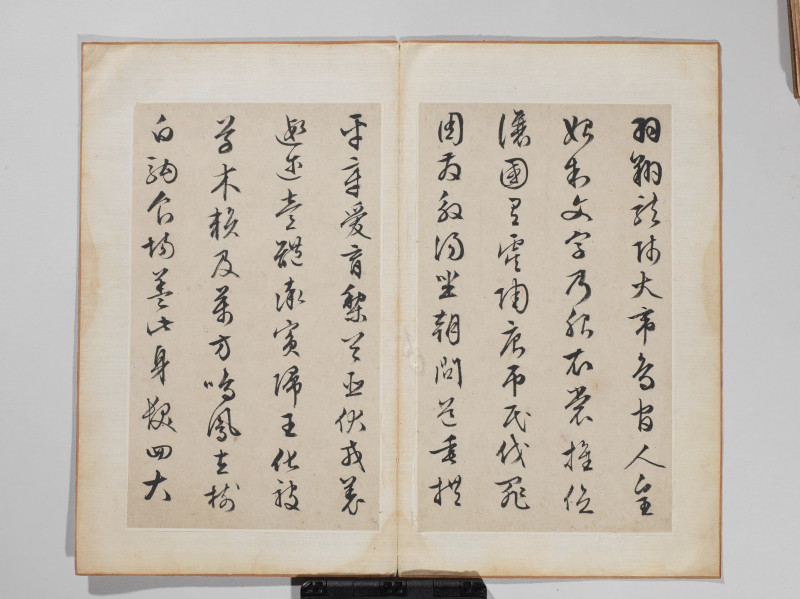 羽翔龍師火帝鳥官人皇
始制文字乃服衣裳推位
讓國有虞陶唐弔民伐罪
周發殷湯坐朝問道垂拱
平章愛育黎首臣伏戎羌
遐邇壹體率賓歸王化被
草木賴及萬方鳴鳳在樹
白駒食場蓋此身髮四大